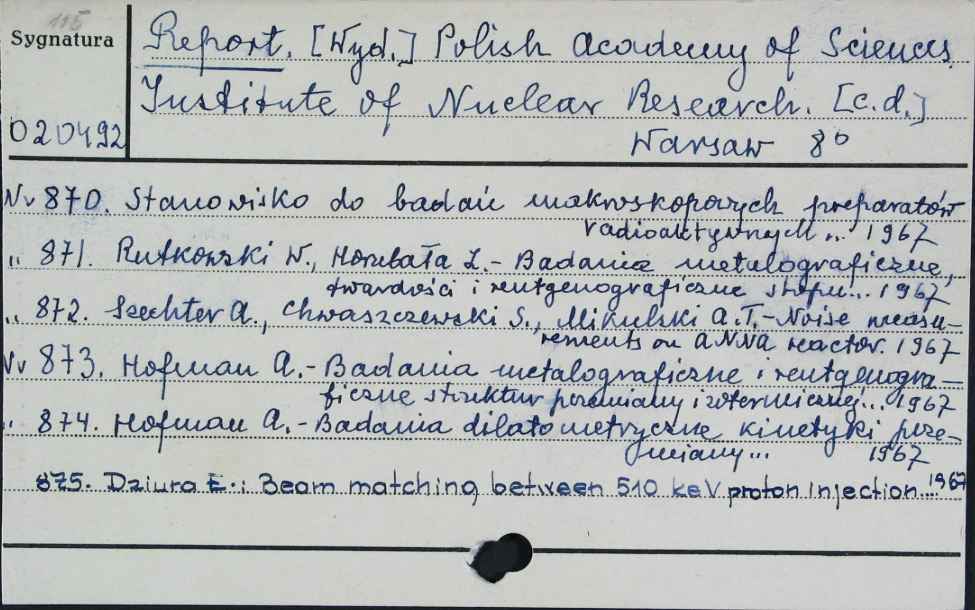 115
Sygnatura
Report. [Wyd.] Polish Academy of Sciences
Institute of Nuclear Research. [c.d.]
020492
Warsaw 8°
Nr 870. Stanowisko do badań makroskopowych preparatów
radioaktywnych... 1967
" 871. Rutkowski W., Horubała L.- Badania metalograficzne,
twardości i rentgenograficzne stopu... 1967
" 872. Szechter A., Chwaszczewski S., Mikulski A.T.-Noise measu-
rements on ANNA reactor. 1967
Nr 873. Hofman A.-Badania metalograficzne i rentgenogra-
ficzne struktur przemiany izotermicznej... 1967
" 874. Hofman A.-Badania dilatometryczne kinetyki prze-
miany... 1967
875. Dziura E.: Beam matching between 510 keV proton injection...1967